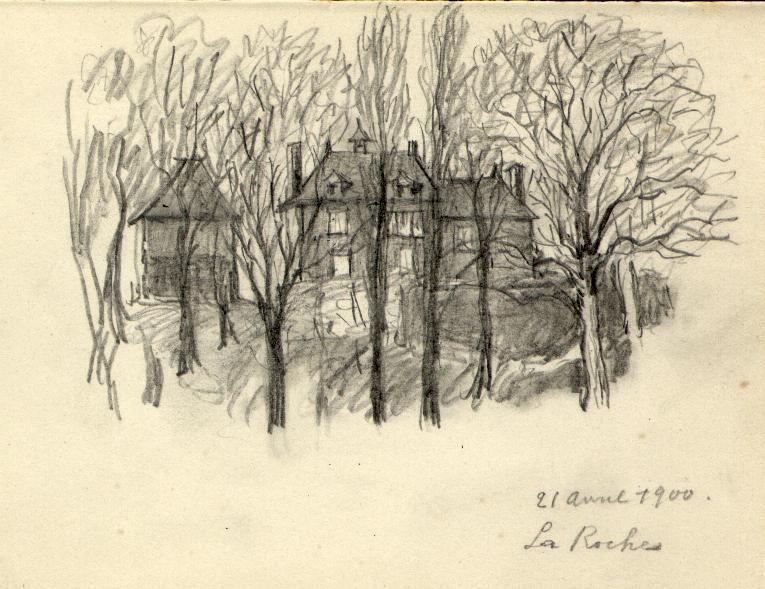 21 avril 1900.
La Roches